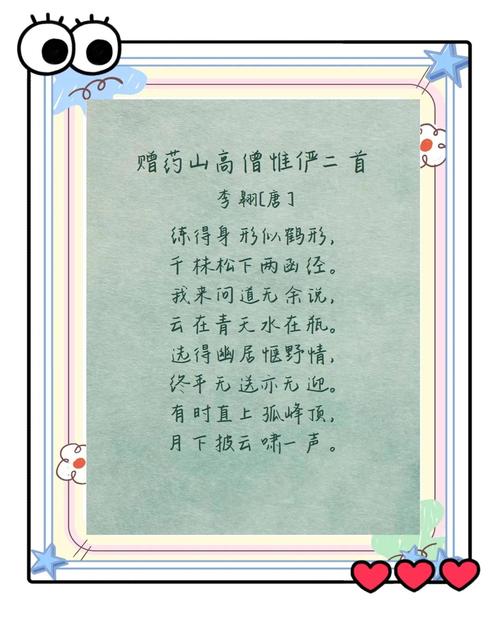 赠药山高僧惟俨二首
李翱[唐]
练得身形似鹤形，
千株松下两函经。
我来问道无余说，
云在青天水在瓶。
选得幽居惬野情，
终年无送亦无迎。
有时直上孤峰顶，
月下披云啸一声。